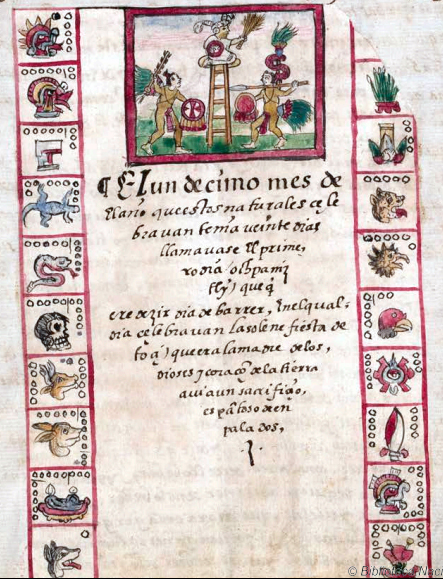 ¶ El un decimo mes de
el año que estos naturales çele
bravan tenia veinte dias
llamavase el prime,
ro dia ochpaniz
tly) que q
ere dezir dia de barrer, en el qual-
dia çelebravan la solene fiesta de
toçi) que era la madre de los,
dioses y coraçō de la tierra
avia un sacrifiçio,
espātoso de en
palados,
© Biblioteca Naci